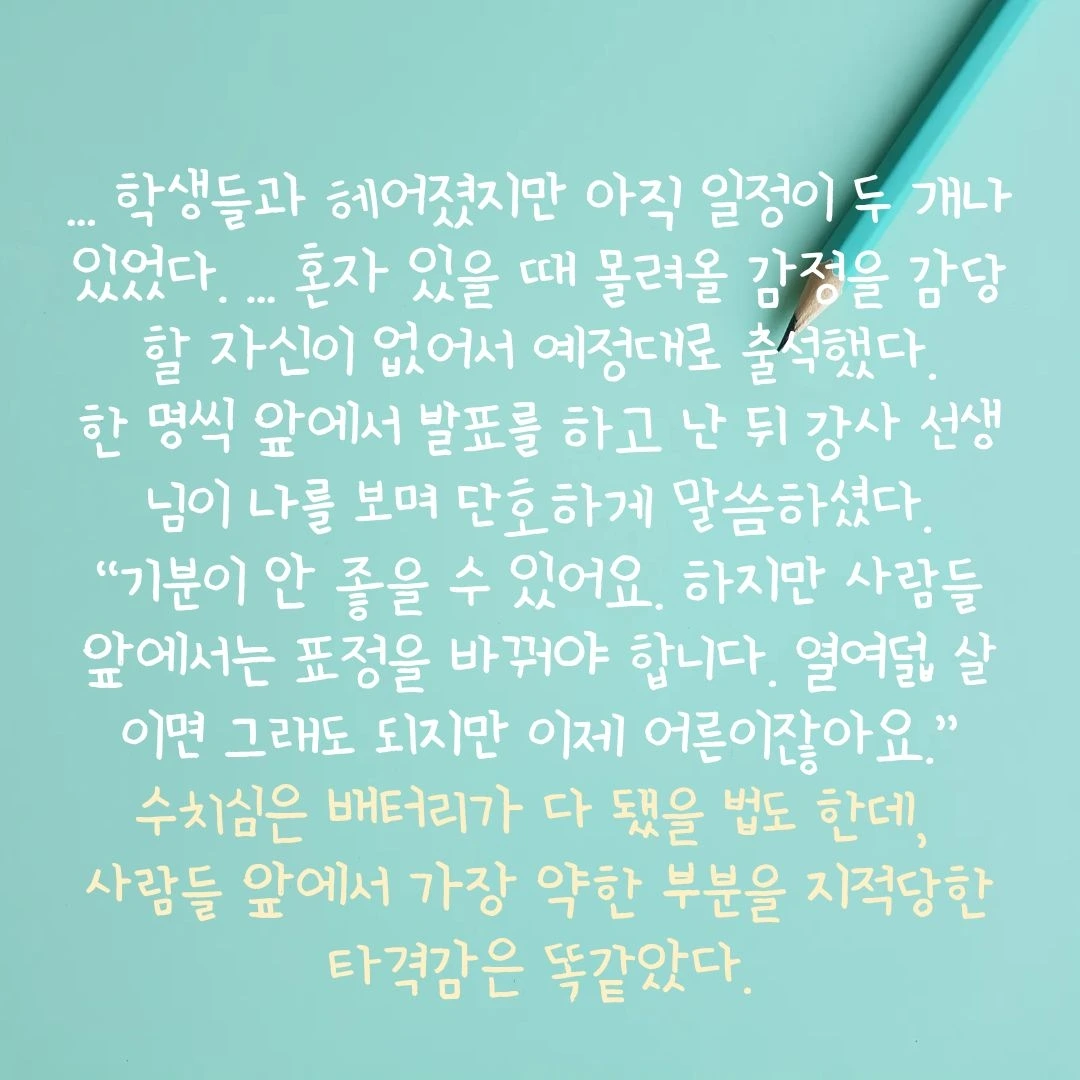 ... 학생들과 헤어졌지만 아직 일정이 두 개나
있었다. ... 혼자 있을 때 몰려올 감정을 감당
할 자신이 없어서 예정대로 출석했다.
한 명씩 앞에서 발표를 하고 난 뒤 강사 선생
님이 나를 보며 단호하게 말씀하셨다.
“기분이 안 좋을 수 있어요. 하지만 사람들
앞에서는 표정을 바꿔야 합니다. 열여덟 살
이면 그래도 되지만 이제 어른이잖아요.”
수치심은 배터리가 다 됐을 법도 한데,
사람들 앞에서 가장 약한 부분을 지적당한
타격감은 똑같았다.